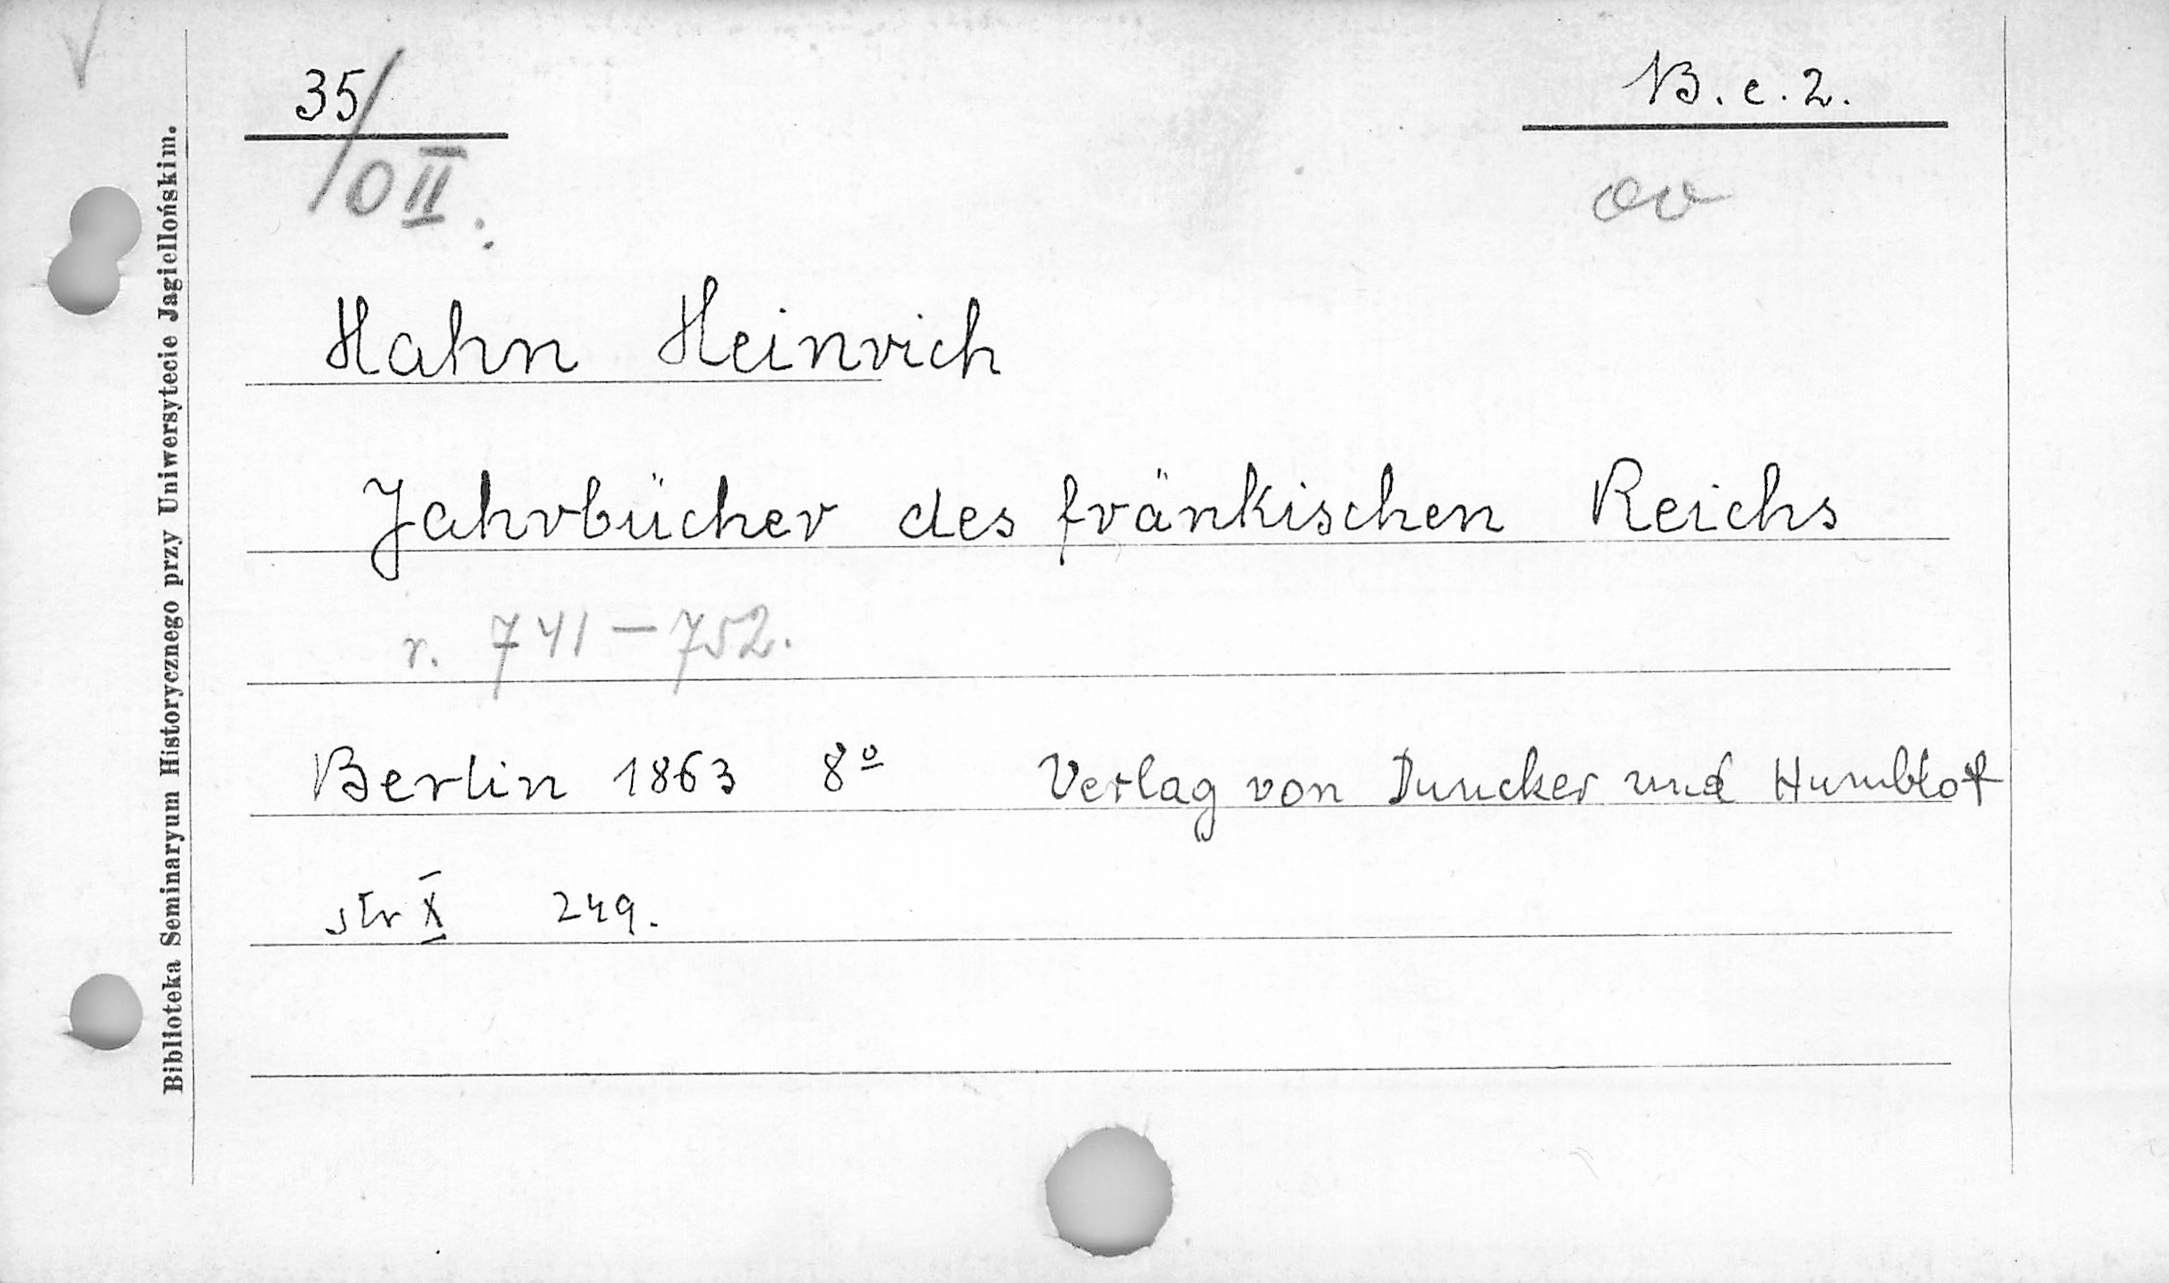 35/
B. c. 2.
0 II.
Hahn Heinrich
Jahrbücher des fränkischen Reichs
r. 741 – 752.
Berlin 1863 8º Verlag von Duncker und Humblot
str X 249.
Biblioteka Seminaryum Historycznego przy Uniwersytecie Jagiellońskim.